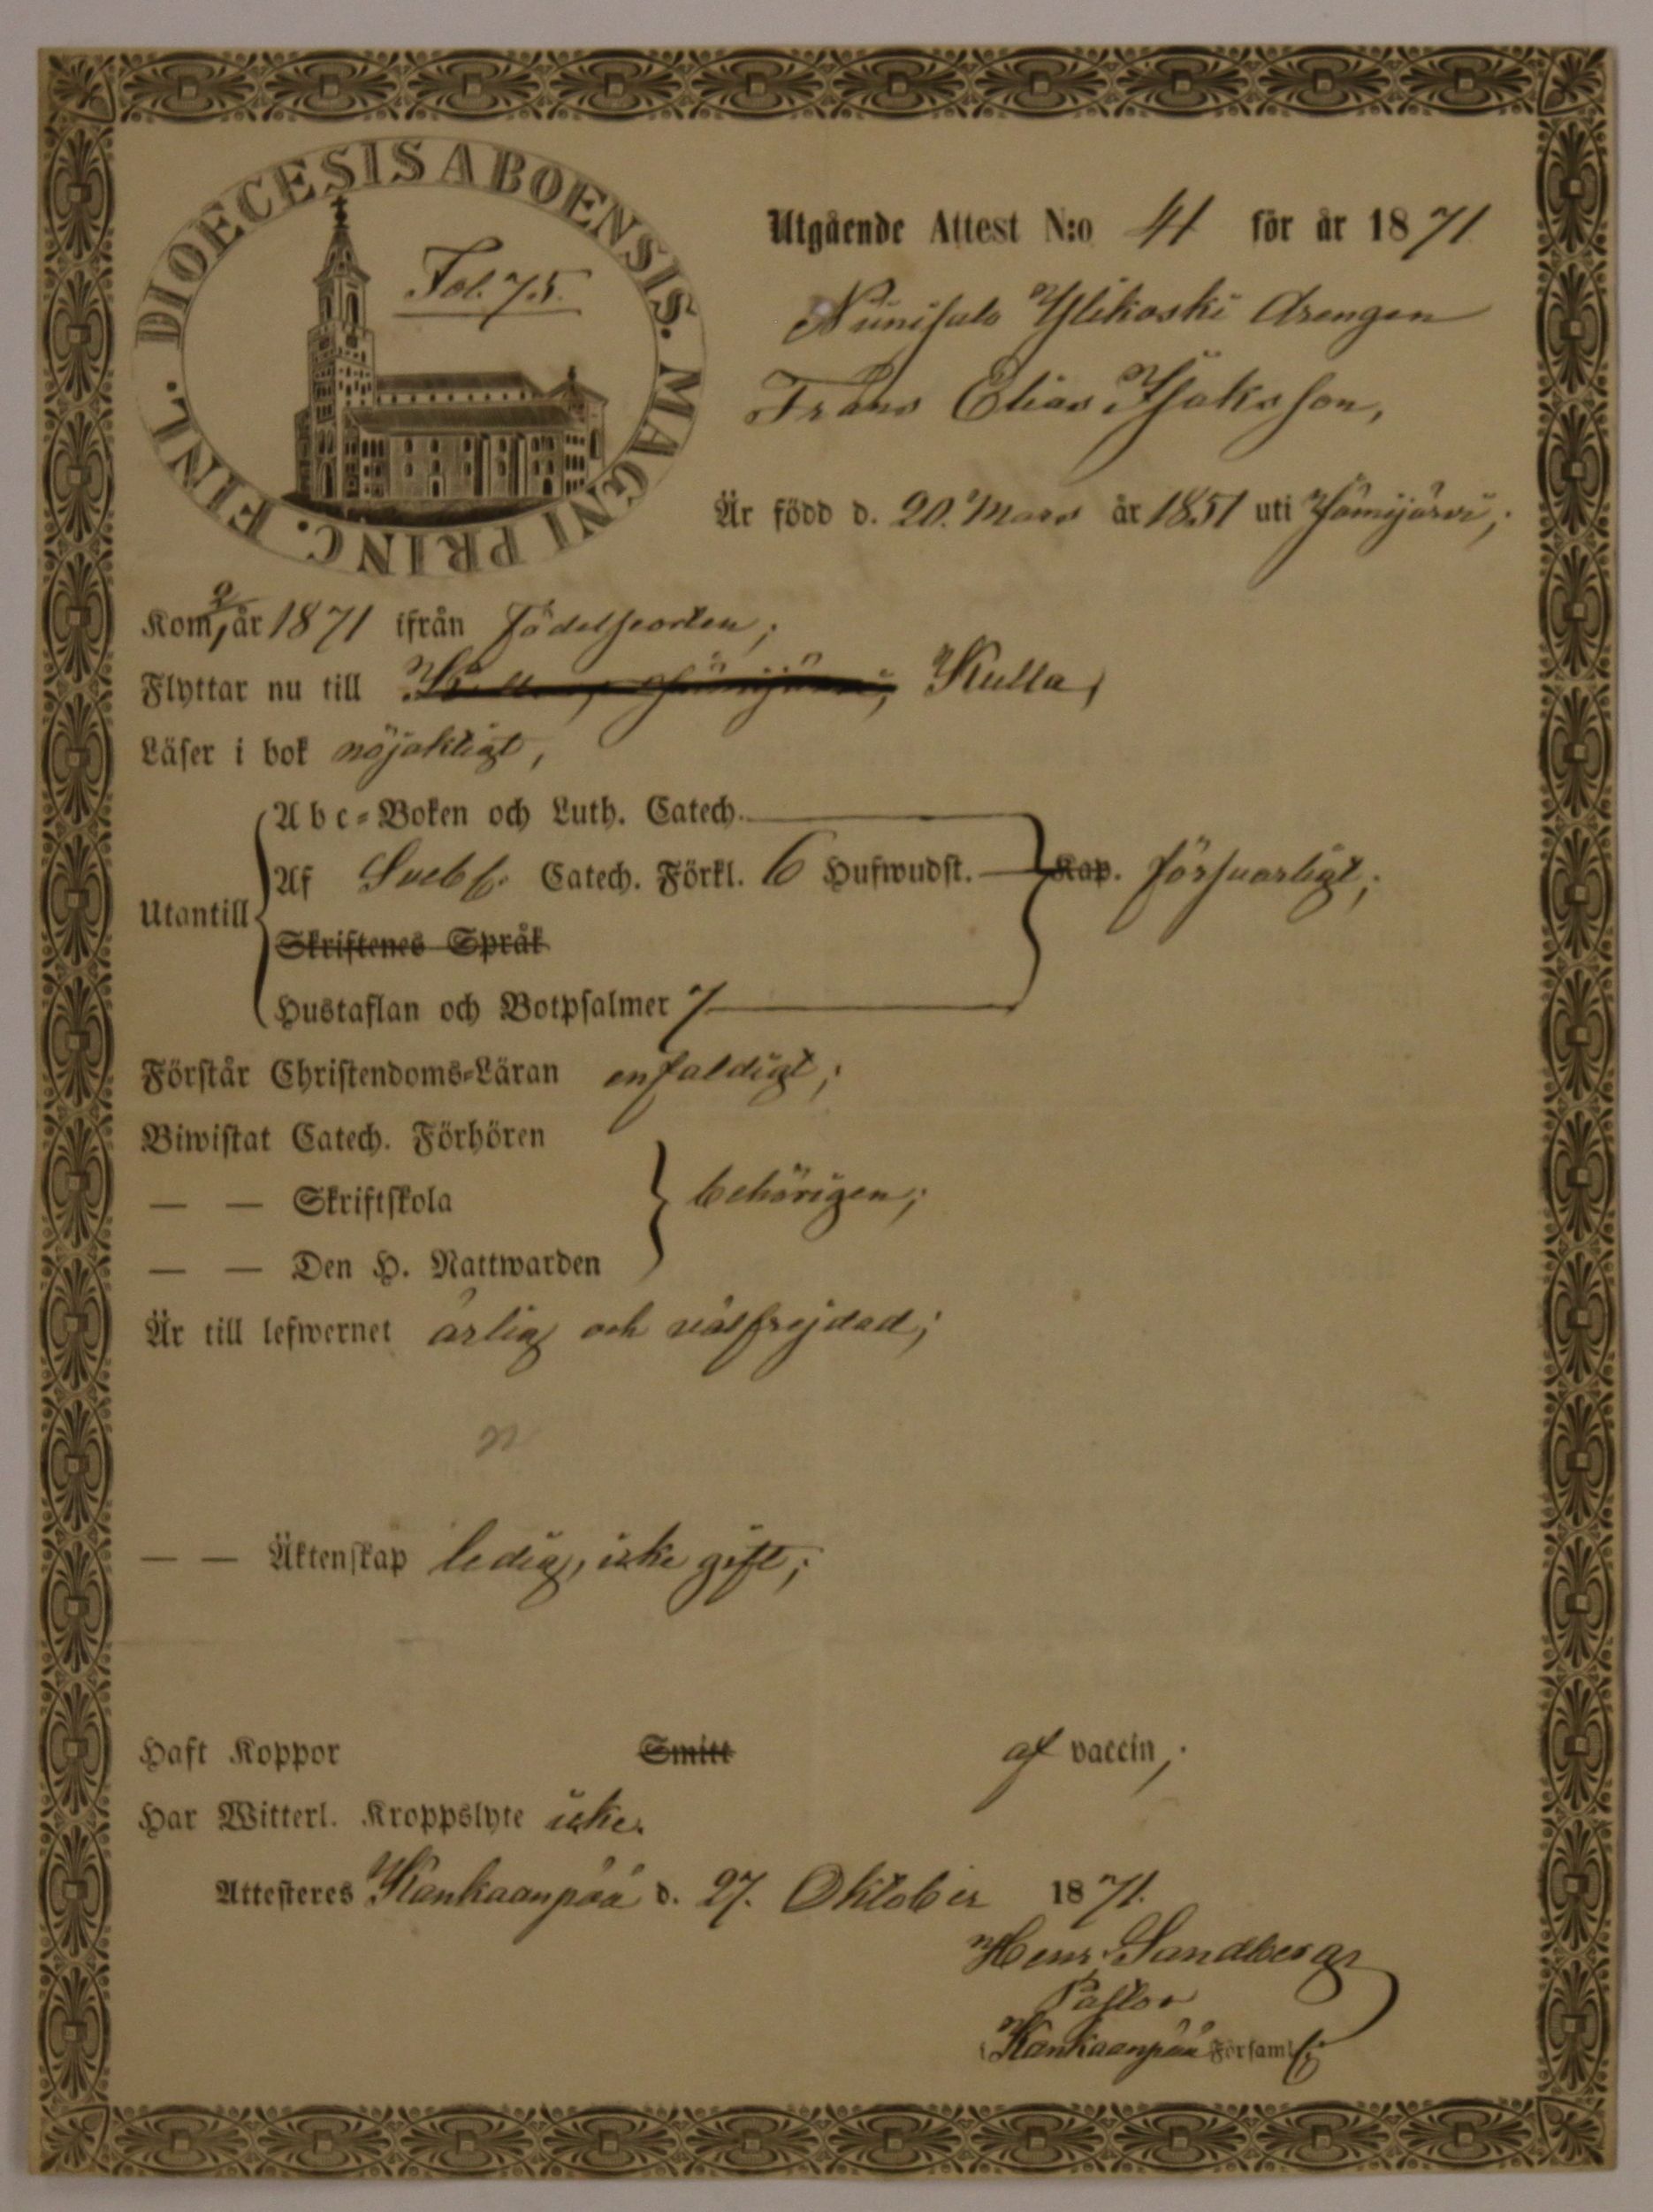 DIOECESIS ABOENSIS. MAGNI PRINC. FINL.
Fol. 75.
Utgående Attest N:o 41 för år 1871
Niinisalo Ylikoski drengen
Frans Elias Isaksson,
Är född d. 20. Mars år 1851 uti Jämijärvi;
Kom, år 1871 ifrån Födelseorten;
Flyttar nu till Kulla,
Läser i bok nöjaktigt,
Utantill
Abc-Boken och Luth. Catech.
Af Sveb. Catech. Förkl. 6 Hufwudst. Kap. försvarligt;
Skriftenes Språk
Hustaflan och Botpsalmer 7
Förstår Christendoms-Läran enfaldigt;
Biwistat Catech. Förhören
— — Skriftskola behörigen;
— — Den H. Nattwarden
Är till lefwernet ärlig och välfrejdad;
— — Äktenskap ledig, icke gift;
Haft Koppor Smitt af vaccin;
Har Witterl. Kroppslyte icke.
Attesteres Kankaanpää d. 27. Oktober 1871.
Henr. Sandberg
Pastor
i Kankaanpää Församl.